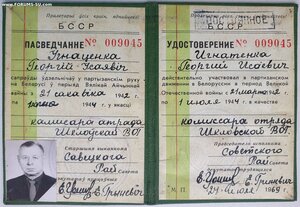 www.FORUMS-SU.com
Пралетарыі ўсіх краін, яднайцеся!
БССР
ПАСВЕДЧАННЕ № 009045
Ігнаценка
Георгій Ісаявіч
сапраўды удзельнічаў у партызанскім руху
на Беларусі ў перыяд Вялікай Айчыннай
вайны з 21 1942 г. па
1944 г. у якасці
камісара атрада
Савецкага
Рай Савета
Пролетарии всех стран, соединяйтесь!
БССР
УДОСТОВЕРЕНИЕ № 009045
Игнатенко
Георгий Исаевич
действительно участвовал в партизанском
движении в Белоруссии в период Великой
Отечественной войны с 21 марта
1 июля 1944 г. в качестве
комиссара отряда
Председатель исполкома
Советского
Рай Совета
М. П.
24 1969 г.